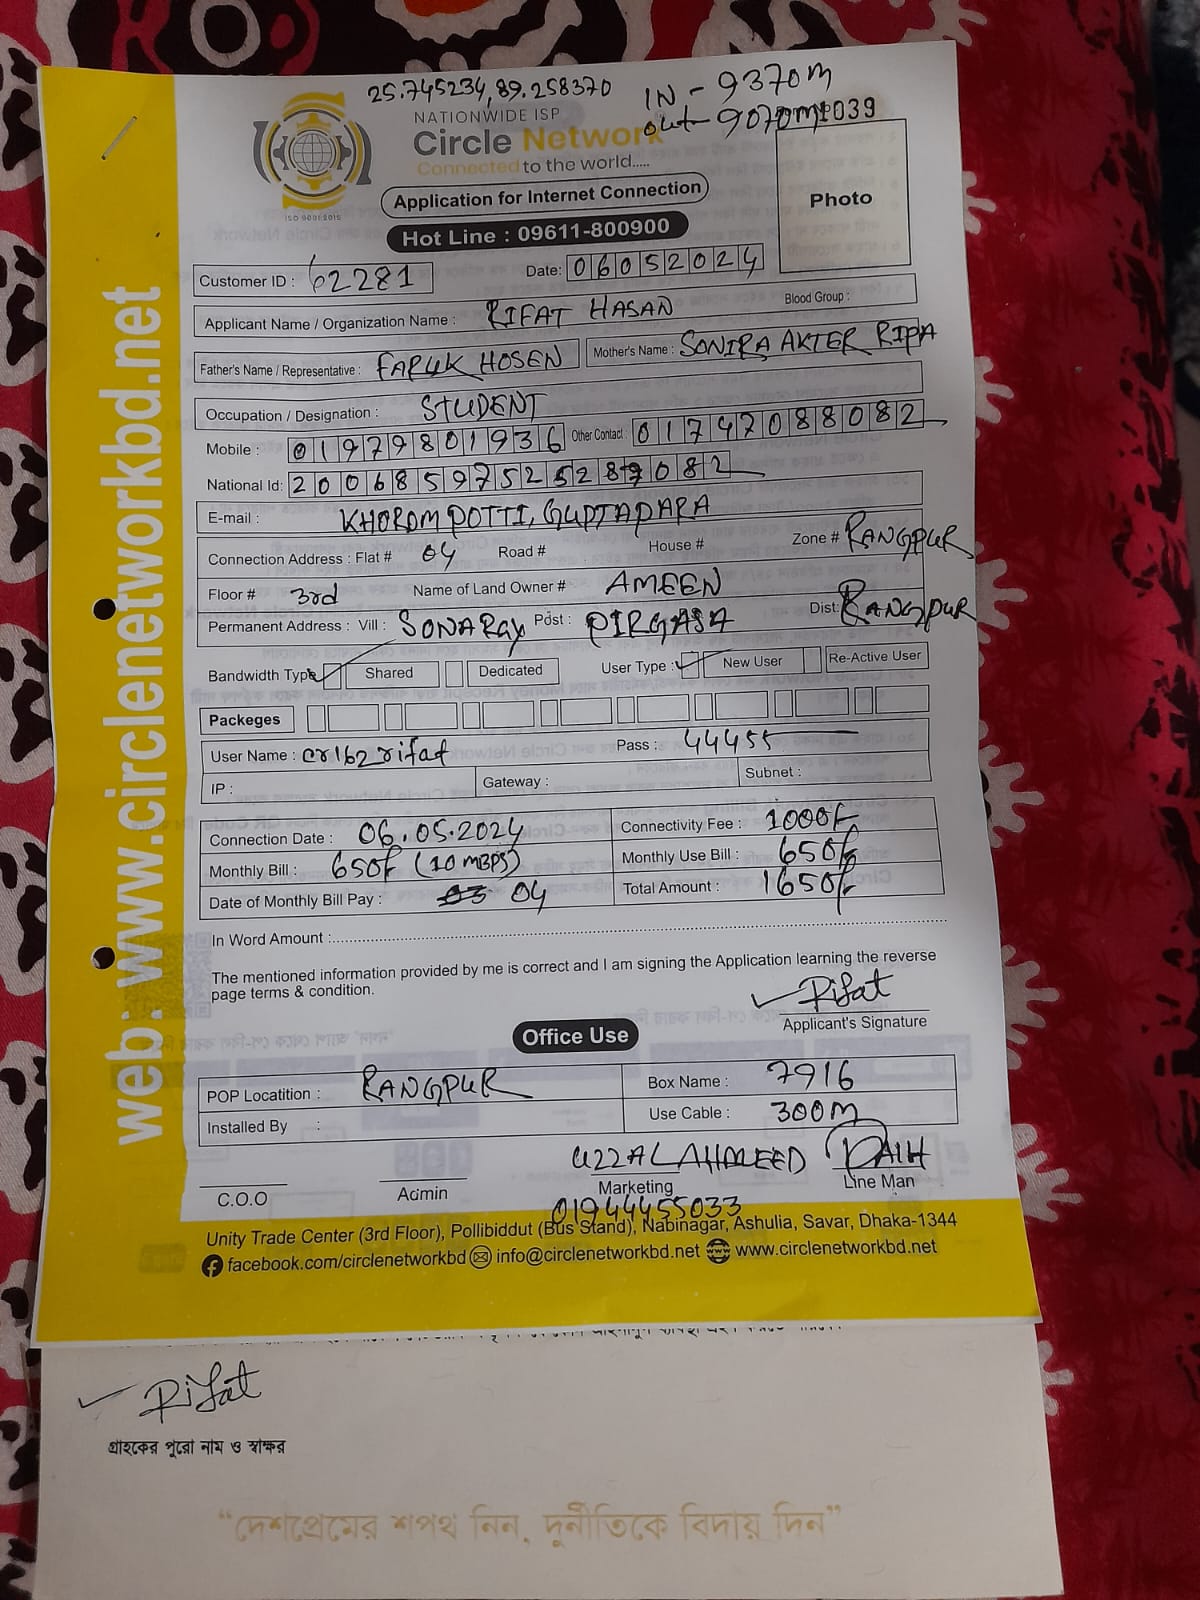 25.745234,89.258370
IN - 9370m
out - 9070m 1039
NATIONWIDE ISP
Circle Network
Connected to the world.....
ISO 9001:2015
Application for Internet Connection
Hot Line : 09611-800900
Photo
Customer ID : 62281 Date: 06052024
Applicant Name / Organization Name : RIFAT HASAN Blood Group :
Father's Name / Representative : FARUK HOSEN Mother's Name : SONIRA AKTER RIPA
Occupation / Designation : STUDENT
Mobile : 01979801936 Other Contact : 01747088082
National Id: 20068597525287082
E-mail : KHOROM POTTI, GUPTAPARA
Connection Address : Flat # 04 Road # House # Zone # RANGPUR
Floor # 3rd Name of Land Owner # AMEEN
Permanent Address : Vill : SONARAY Post : PIRGASA Dist: RANGPUR
Bandwidth Type Shared Dedicated User Type : New User Re-Active User
Packeges
User Name : cr162rifat Pass : 44455
IP : Gateway : Subnet :
Connection Date : 06.05.2024 Connectivity Fee : 1000/-
Monthly Bill : 650/- (10 MBPS) Monthly Use Bill : 650/-
Date of Monthly Bill Pay : 03 04 Total Amount : 1650/-
In Word Amount :
The mentioned information provided by me is correct and I am signing the Application learning the reverse
page terms & condition.
Rifat
Applicant's Signature
Office Use
POP Locatition : RANGPUR Box Name : 7916
Installed By : Use Cable : 300m
UZZAL AHMEED
C.O.O Admin Marketing Line Man
01944455033
Unity Trade Center (3rd Floor), Pollibiddut (Bus Stand), Nabinagar, Ashulia, Savar, Dhaka-1344
facebook.com/circlenetworkbd info@circlenetworkbd.net www.circlenetworkbd.net
web: www.circlenetworkbd.net
Rifat
গ্রাহকের পুরো নাম ও স্বাক্ষর
“দেশপ্রেমের শপথ নিন, দুর্নীতিকে বিদায় দিন”